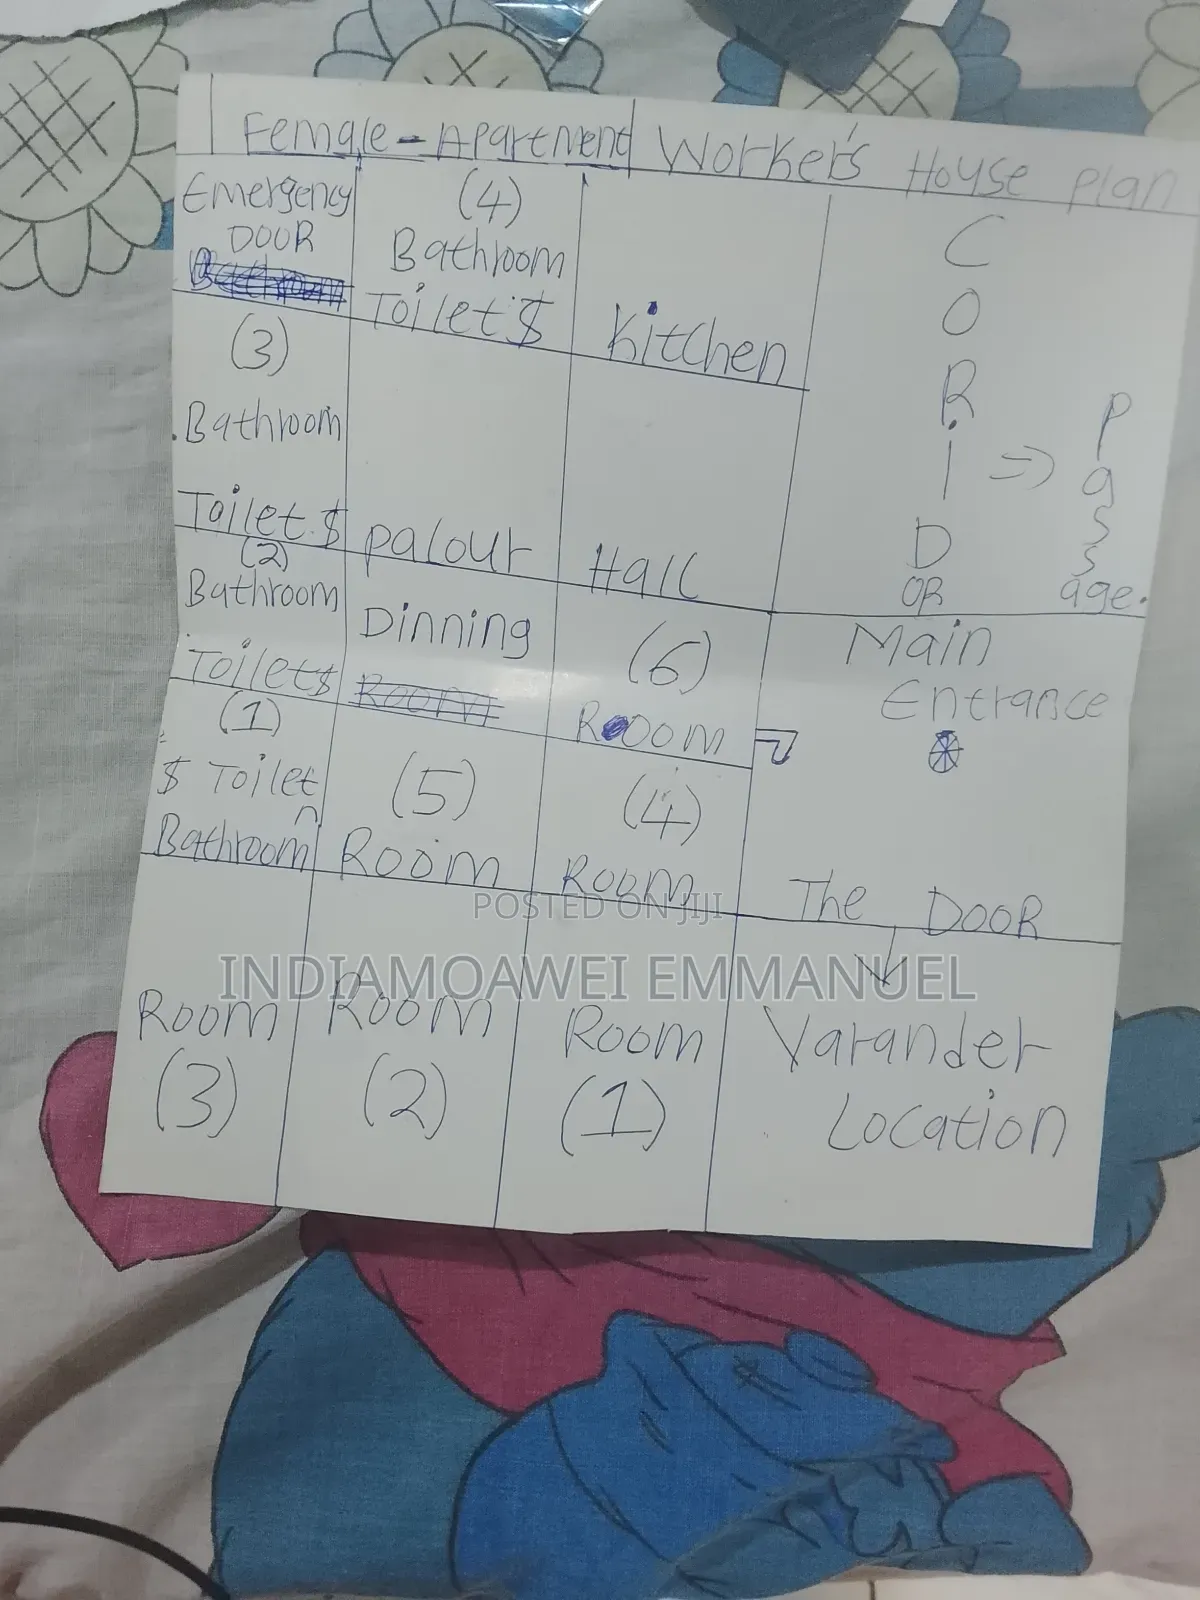 Female - Apartment Worker's House plan
Emergency
DOOR
(4)
Bathroom
Toilet $
Kitchen
C
O
R
I
D
OR
=>
P
a
s
s
age.
(3)
Bathroom
Toilet $
palour
Hall
(2)
Bathroom
Toilet $
Dinning
Room
(6)
Room
Main
Entrance
(1)
$ Toilet
Bathroom
(5)
Room
(4)
Room
The DOOR
POSTED ON JIJI
INDIAMOAWEI EMMANUEL
Room
(3)
Room
(2)
Room
(1)
Varander
Location